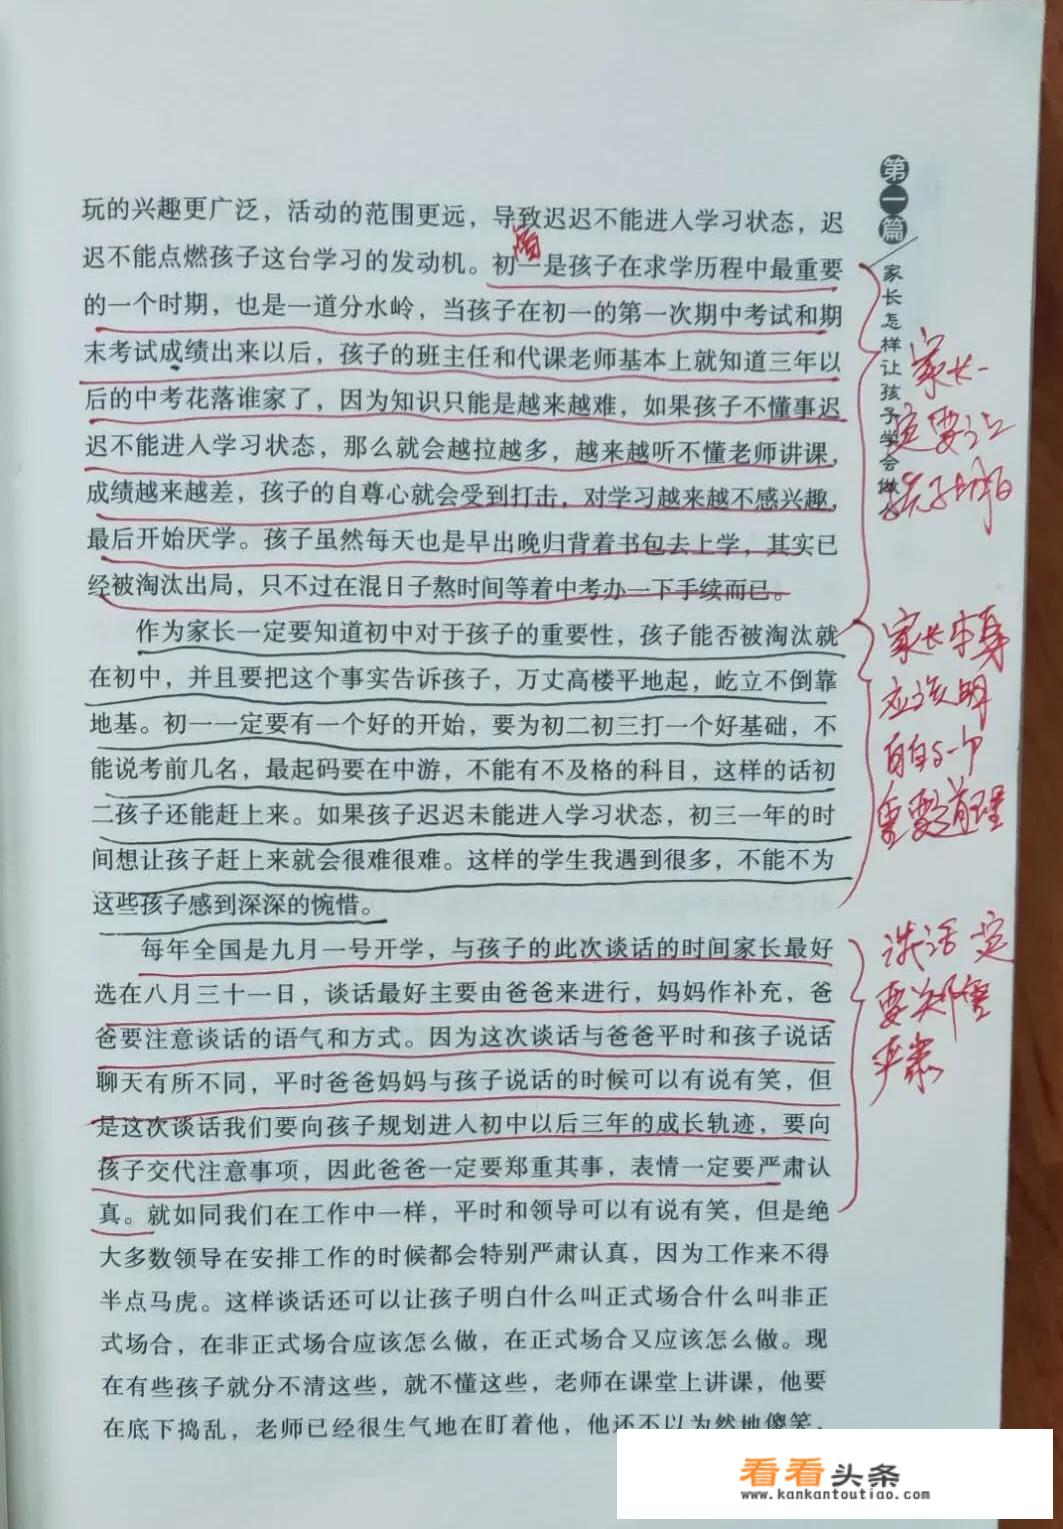 玩的兴趣更广泛，活动的范围更远，导致迟迟不能进入学习状态，迟
迟不能点燃孩子这台学习的发动机。初一是孩子在求学历程中最重要
的一个时期，也是一道分水岭，当孩子在初一的第一次期中考试和期
末考试成绩出来以后，孩子的班主任和代课老师基本上就知道三年以
后的中考花落谁家了，因为知识只能是越来越难，如果孩子不懂事迟
迟不能进入学习状态，那么就会越拉越多，越来越听不懂老师讲课，
成绩越来越差，孩子的自尊心就会受到打击，对学习越来越不感兴趣，
最后开始厌学。孩子虽然每天也是早出晚归背着书包去上学，其实已
经被淘汰出局，只不过在混日子熬时间等着中考办一下手续而已。
作为家长一定要知道初中对于孩子的重要性，孩子能否被淘汰就
在初中，并且要把这个事实告诉孩子，万丈高楼平地起，屹立不倒靠
地基。初一一定要有一个好的开始，要为初二初三打一个好基础，不
能说考前几名，最起码要在中游，不能有不及格的科目，这样的话初
二孩子还能赶上来。如果孩子迟迟未能进入学习状态，初三一年的时
间想让孩子赶上来就会很难很难。这样的学生我遇到很多，不能不为
这些孩子感到深深的惋惜。
每年全国是九月一号开学，与孩子的此次谈话的时间家长最好
选在八月三十一日，谈话最好主要由爸爸来进行，妈妈作补充，爸
爸要注意谈话的语气和方式。因为这次谈话与爸爸平时和孩子说话
聊天有所不同，平时爸爸妈妈与孩子说话的时候可以有说有笑，但
是这次谈话我们要向孩子规划进入初中以后三年的成长轨迹，要向
孩子交代注意事项，因此爸爸一定要郑重其事，表情一定要严肃认
真。就如同我们在工作中一样，平时和领导可以有说有笑，但是绝
大多数领导在安排工作的时候都会特别严肃认真，因为工作来不得
半点马虎。这样谈话还可以让孩子明白什么叫正式场合什么叫非正
式场合，在非正式场合应该怎么做，在正式场合又应该怎么做。现
在有些孩子就分不清这些，就不懂这些，老师在课堂上讲课，他要
在底下捣乱，老师已经很生气地在盯着他，他还不以为然地傻笑，
第一篇
家长怎样让孩子学会做
家长一
定要让
孩子明白
家长本身
应该明
白自
重要道理
谈话一定
要郑重
严肃
看看头条
www.kankantoutiao.com